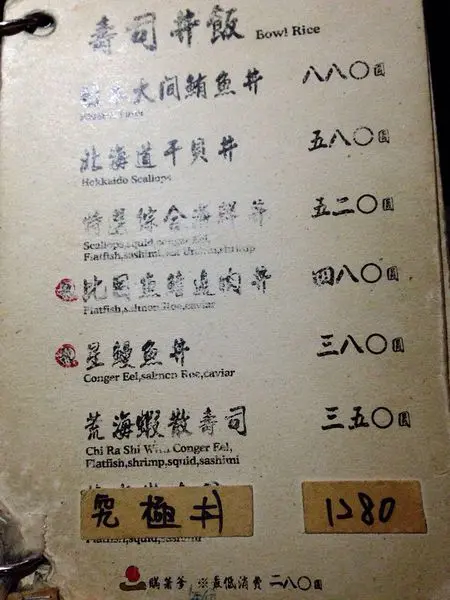 壽司丼飯 Bowl Rice
大间鮪魚丼 八八〇圓
北海道干貝丼 五八〇圓
Hokkaido Scallops
特選綜合海鮮丼 五二〇圓
Scallops,squid conger Eel,
Flatfish,sashimi, Urchin,shrimp
比目魚鰭邊肉丼 四八〇圓
Flatfish,salmon Roe,caviar
星鰻魚丼 三八〇圓
Conger Eel,salmon Roe,caviar
荒海蝦散壽司 三五〇圓
Chi Ra Shi With Conger Eel,
Flatfish,shrimp,squid,sashimi
究極丼 1280
Flatfish,squid,sashimi
※最低消費 二八〇圓